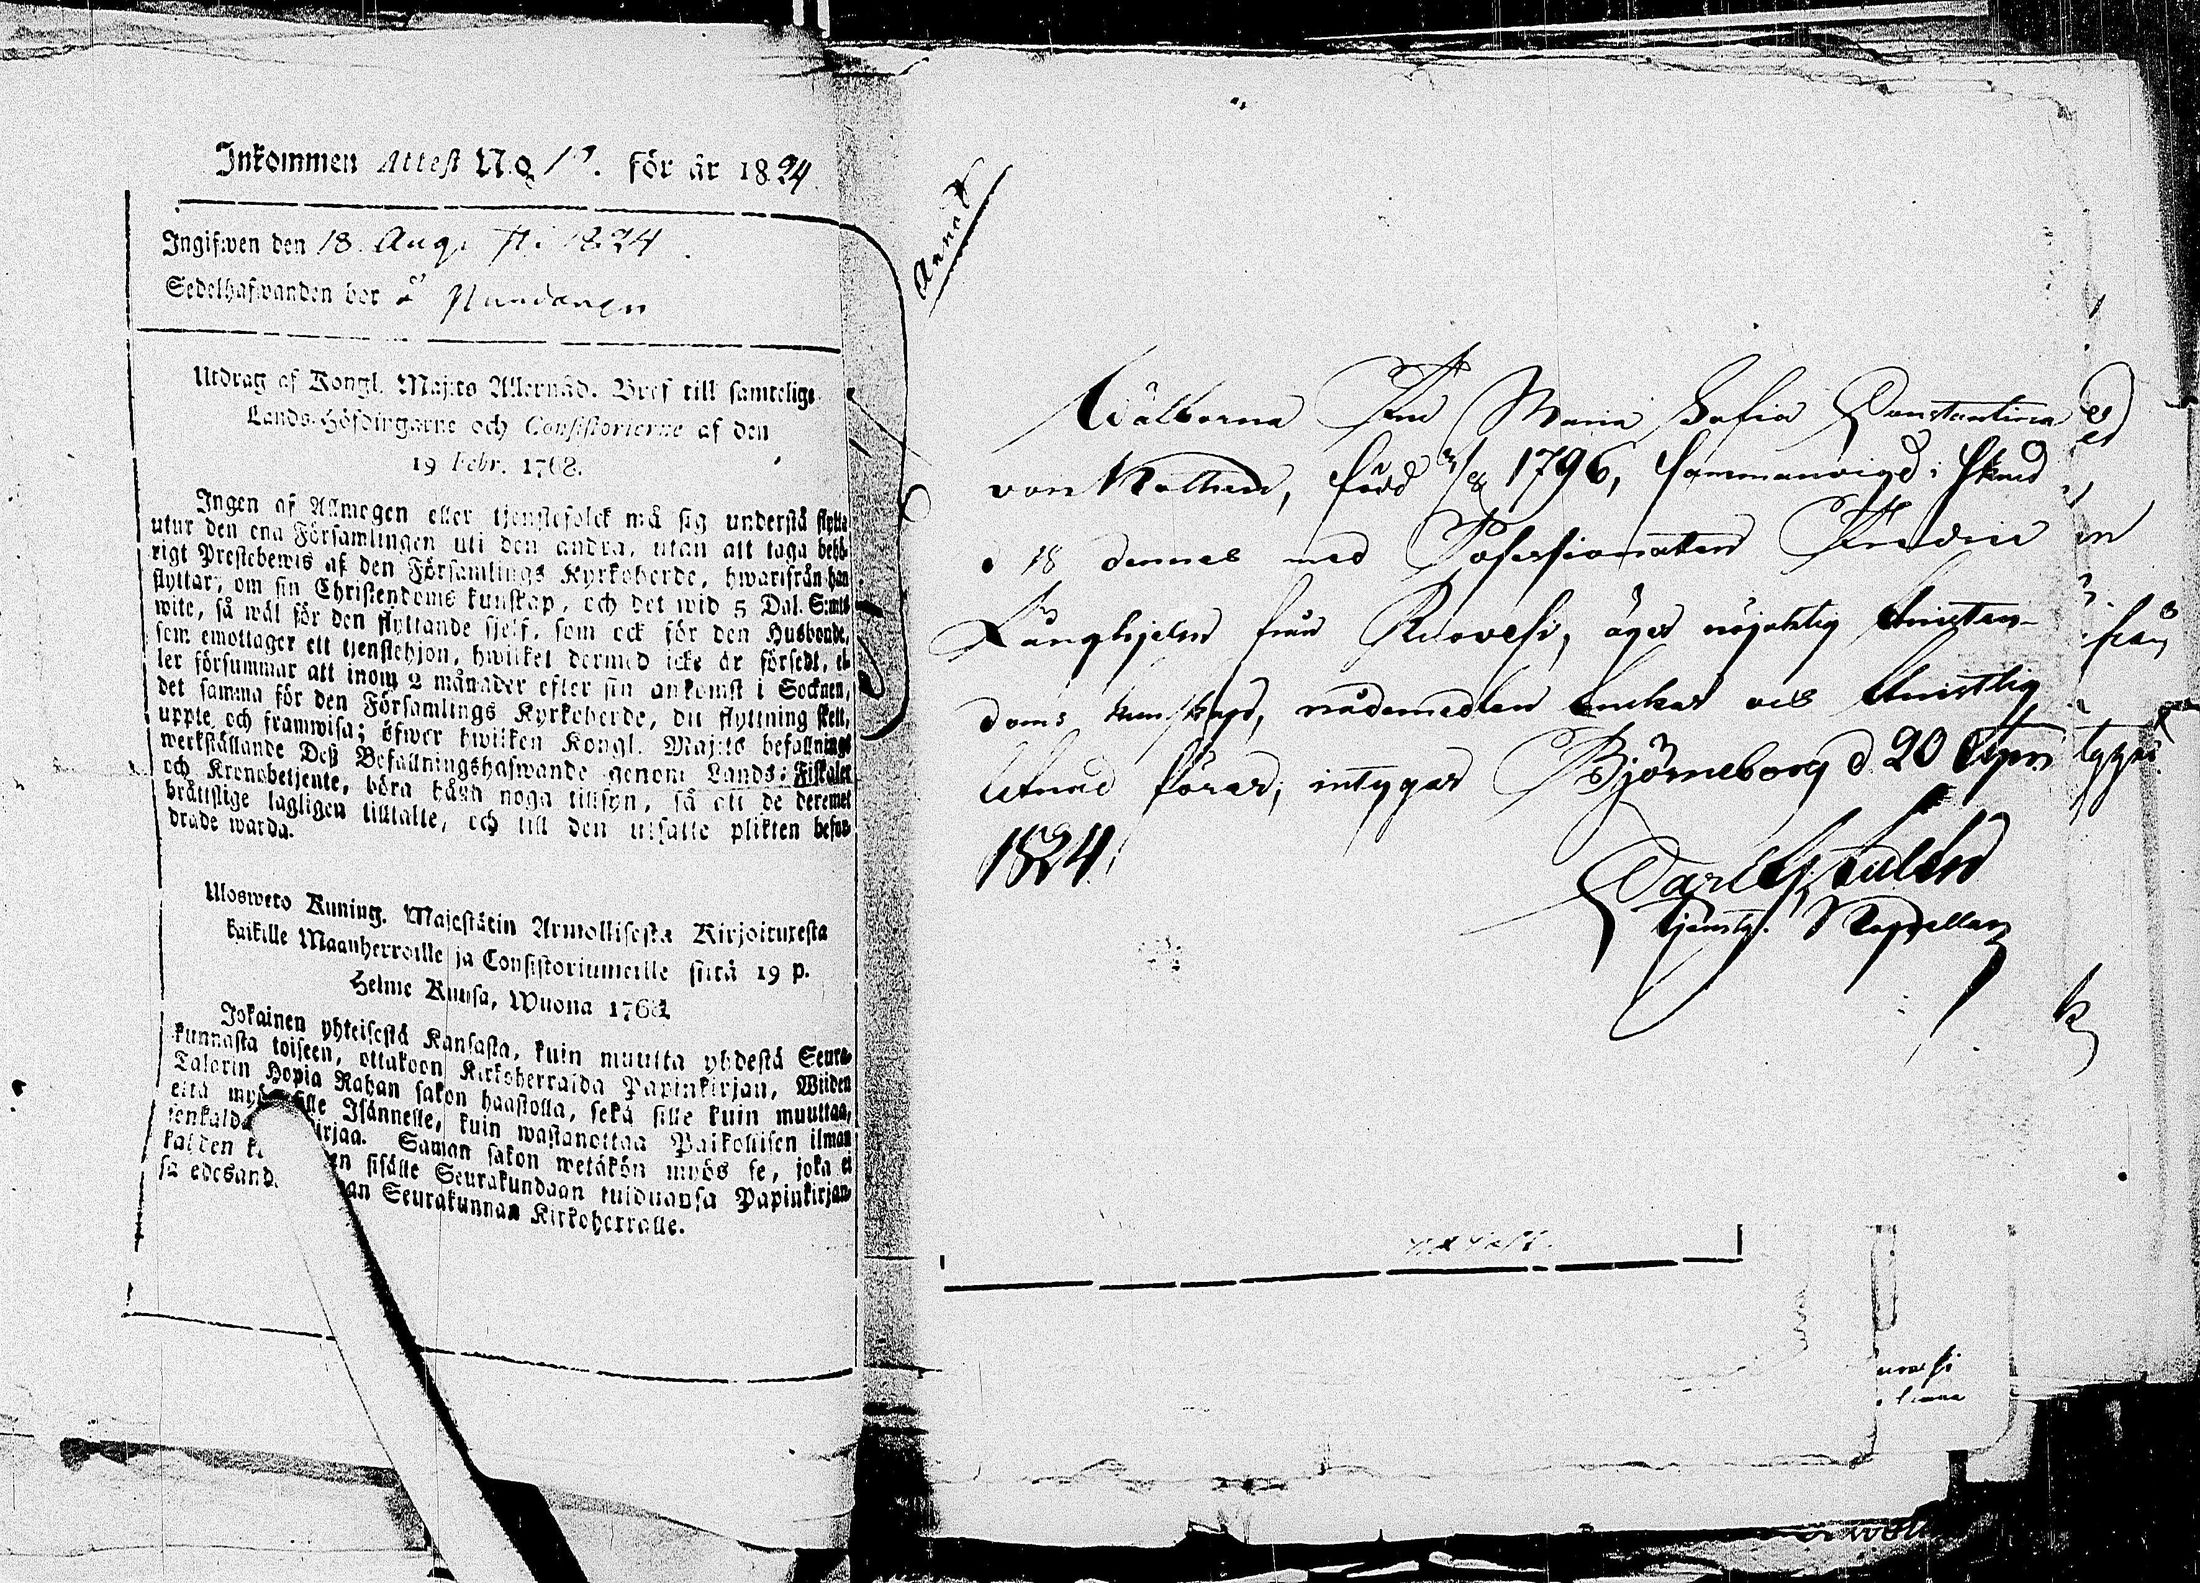 Inkommen Attest N:o 1 . för år 1824
Ingifwen den 18. Augusti 1824.
Sedelhafwanden bor å
Utdrag af Kongl. Maj:ts Allernåd. Bref till samtelige
Lands-Höfdingarne och Consistorierne af den
19 Febr. 1768.
Ingen af Allmogen eller tjenstefolck må sig understå flytta
utur den ena Församlingen uti den andra, utan att taga behö-
rigt Prestebewis af den Församlings Kyrkoherde, hwarifrån han
flyttar, om sin Christendoms kunskap, och det wid 5 Dal. S:mts
wite, så wäl för den flyttande sjelf, som ock för den Husbonde,
som emottager ett tjenstehjon, hwilket dermed icke är försedt, el-
ler försummar att inom 2 månader efter sin ankomst i Socknen,
det samma för den Församlings Kyrkoherde, dit flyttning skett,
uppte och framwisa; öfwer hwilken Kongl. Maj:ts befallnings
werkställande Deß Befallningshafwande genom Lands-Fiskaler
och Kronobetjente, böra hafwa noga tillsyn, så att de deremot
bråttslige lagligen tilltalte, och till den utsatte plikten befor-
drade warda.
Ulosweto Kuning. Majestätin Armollisesta Kirjoituxesta
kaikille Maanherroille ja Consistoriumeille siitä 19 p.
Helme Kuusa, Wuona 1768.
Jokainen yhteisestä Kansasta, kuin muutta yhdestä Seura-
kunnasta toiseen, ottakoon Kirkoherralda Papinkirjan, Wiiden
Talorin Hopia Rahan sakon haastolla, sekä sille kuin muuttaa,
että myös sille Isännelle, kuin wastanottaa Paikollisen ilman
senkalda kirjaa. Saman sakon wetäkön myös se, joka ei
kahden en sisälle Seurakundaan tulduansa Papinkirjan-
sa edesand an Seurakunnan Kirkoherralle.
Annat
Wälborna Fru Maria Sofia Constantina
von Nothen, född 1796, sammanvigd i
d 18 dennes med Possessionaten Fredric
Långhjelm från Ruovesi, äger nöjaktig Christen-
doms kunskap, nådemedlen brukar och Christlig
lefnad förer, intygar Björneborg d. 20 Apr.
1824.
Carl
tjenstg. Kapellan
från